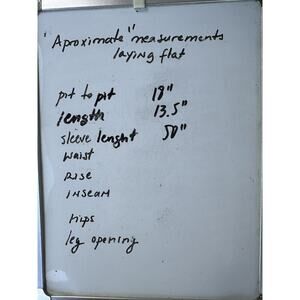 "Aproximate" measurements
laying flat
pit to pit 19"
length 13.5"
sleeve lenght 50"
waist
rise
inseam
hips
leg opening